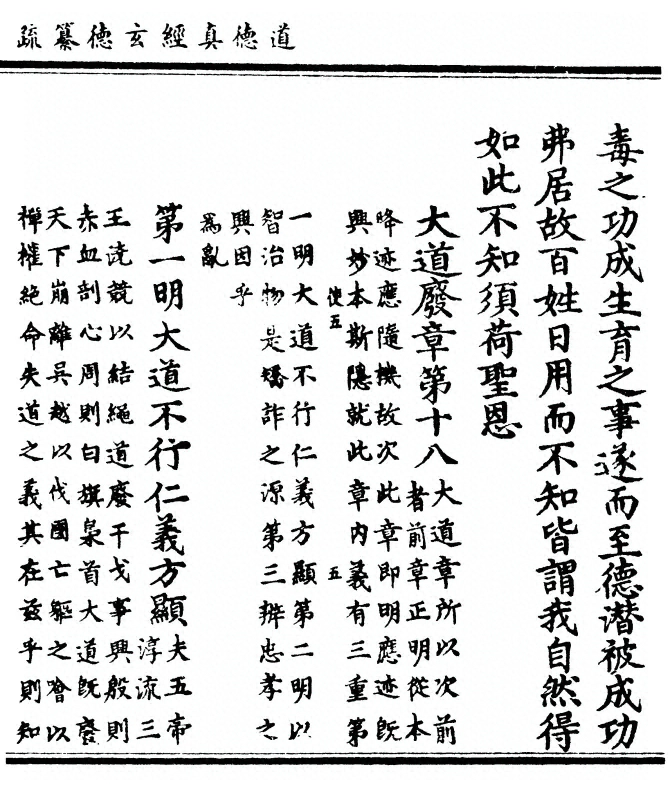 道德真經玄德纂疏
毒之功成生育之事遂而至德潛被成功
弗居故百姓日用而不知皆謂我自然得
如此不知須荷聖恩
大道廢章第十八大道章所以次前
者前章正明從本
降迹應隨機故次此章即明應迹旣
興妙本斯隱就此章內義有三重第
使五 五
一明大道不行仁義方顯第二明以
智治物是矯詐之源第三辨忠孝之
興因乎
爲亂
第一明大道不行仁義方顯夫五帝
淳流三
王澆競以結繩道廢干戈事興殷則
赤血剖心周則白旗梟首大道旣廢
天下崩離吳越以伐國亡軀之噲以
禪權絕命失道之義其在兹乎則知